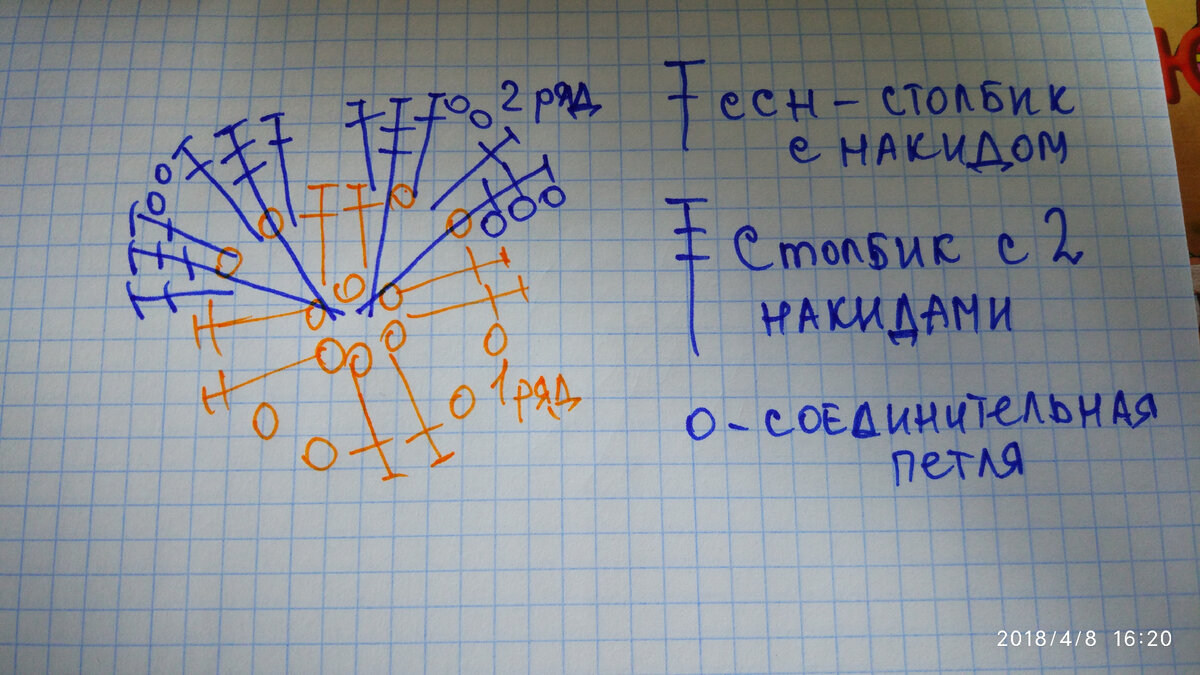 2 ряд
1 ряд
ссн - столбик
с накидом
Столбик с 2
накидами
О - соединительная
петля
2018/4/8 16:20